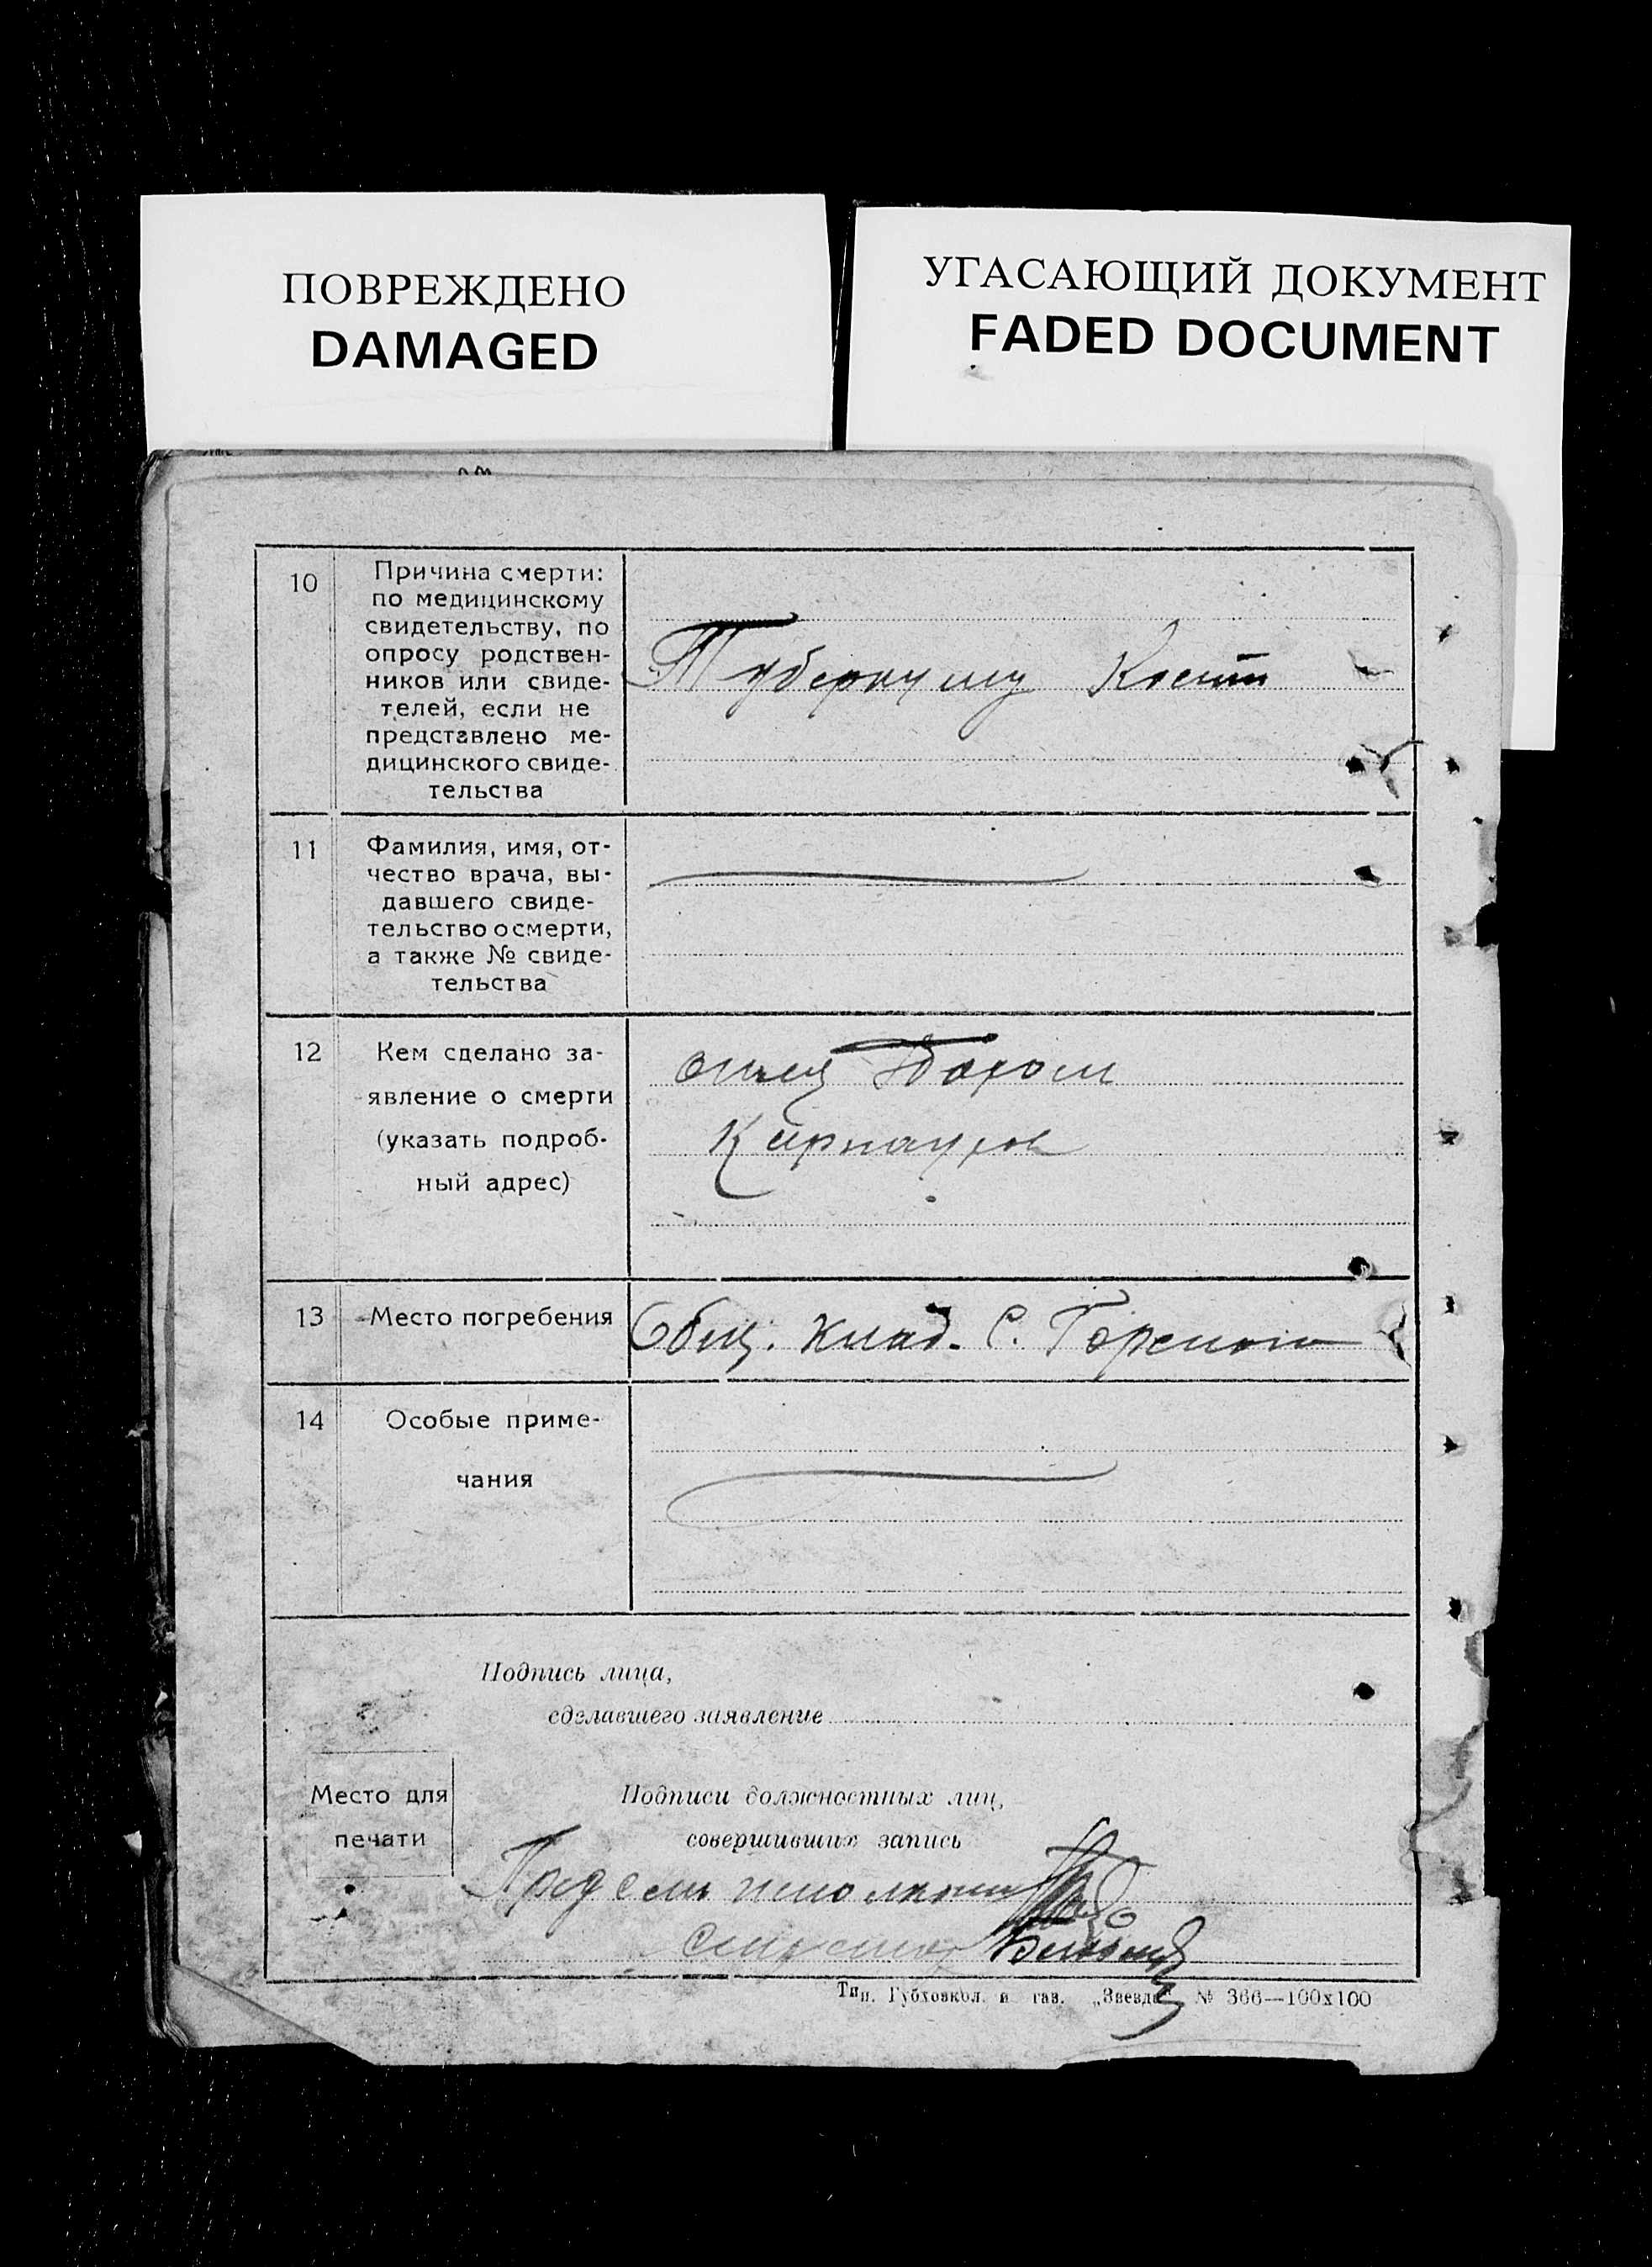 ПОВРЕЖДЕНО
DAMAGED
УГАСАЮЩИЙ ДОКУМЕНТ
FADED DOCUMENT
10
Причина смерти:
по медицинскому
свидетельству, по
опросу родствен-
ников или свиде-
телей, если не
представлено ме-
дицинского свиде-
тельства
Кости
11
Фамилия, имя, от-
чество врача, вы-
давшего свиде-
тельство о смерти,
а также № свиде-
тельства
12
Кем сделано за-
явление о смерти
(указать подроб-
ный адрес)
отец
13
Место погребения
Общ. клад. С.
14
Особые приме-
чания
Подпись лица,
сделавшего заявление
Место для
печати
Подписи должностных лиц,
совершивших запись
Тип. Губховкол. и газ. „Звезда" № 366—100х100